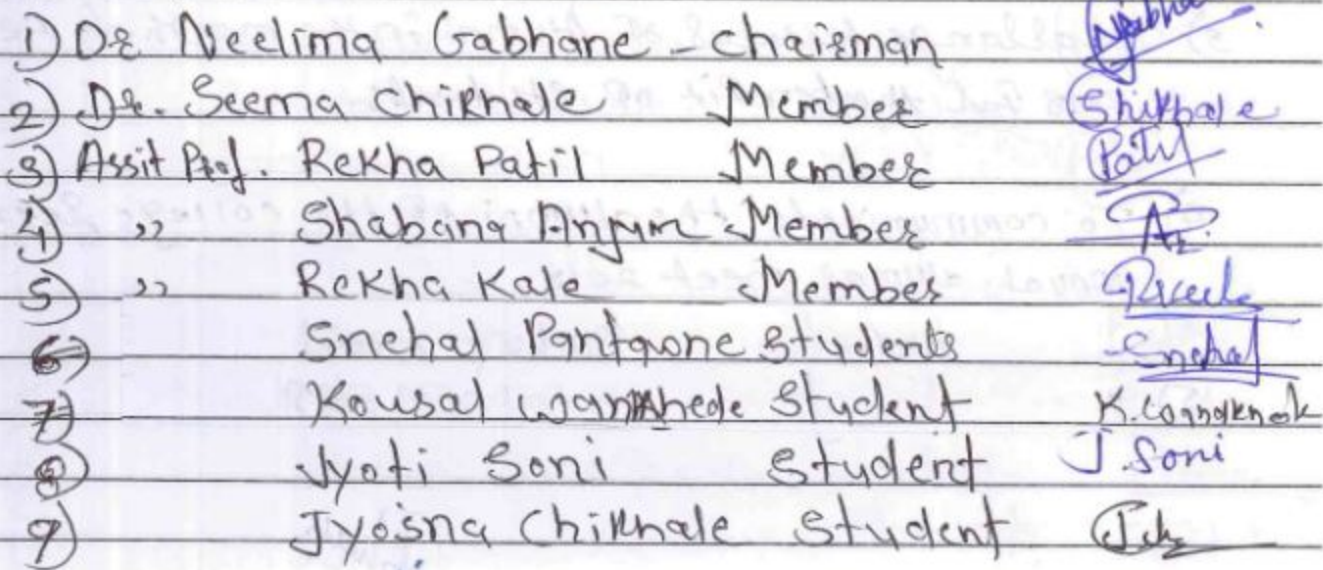 1) Dr. Neelima Gabhane - Chairman
2) Dr. Seema Chikhale Member Shikhale
3) Assit Prof. Rekha Patil Member Patil
4) ,, Shabana Anjum Member
5) ,, Rekha Kale Member
6) Snehal Pantawne Students Snehal
7) Kousal Wankhede Student
8) Jyoti Soni Student J. Soni
9) Jyosna Chikhale Student